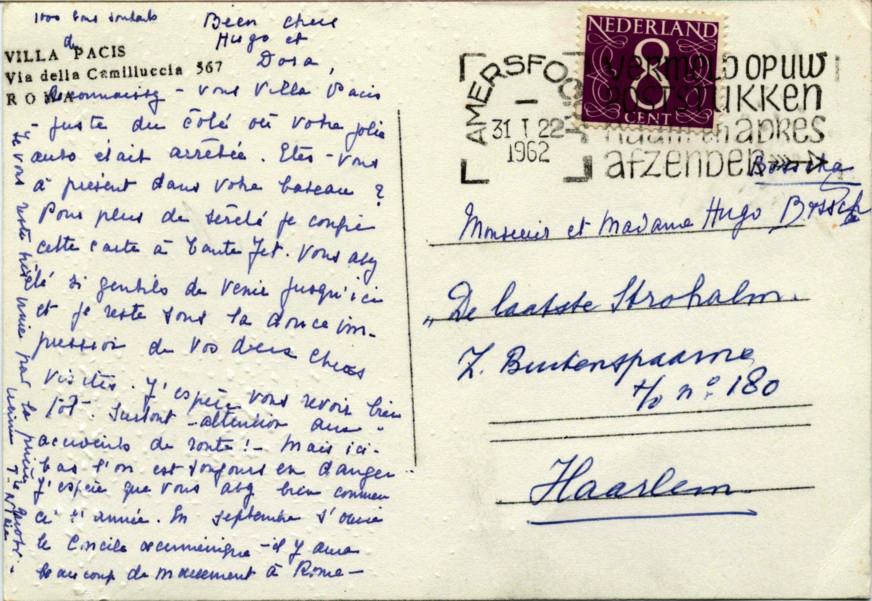 Bien chers
Hugo et
Dora,
VILLA PACIS
Via della Camilluccia 567
ROMA
Reconnaissez-vous Villa Pacis
- juste du côté où votre jolie
auto était arrêtée. Etes-vous
à présent dans votre bateau ?
Pour plus de sûreté je confie
cette carte à Tante Jet. Vous avez
été si gentils de venir jusqu'ici
et je reste sous la douce im-
pression de vos deux chères
visites. J'espère vous revoir bien
tôt. Surtout - attention aux
accidents de route ! - Mais ici-
bas l'on est toujours en danger
J'espère que vous avez bien commen
cé l'année. En septembre s'ouvre
le Concile œcuménique - il y aura
beaucoup de mouvement à Rome -
Je vous reste bien unie par la prière
NEDERLAND
8
CENT
AMERSFOORT
31 I 22
1962
vermeld op uw
poststukken
naam en adres
afzender
Bosscha
Monsieur et Madame Hugo Bossch
"De laatste Strohalm.
Z. Buitenspaarne
t/o nº 180
Haarlem